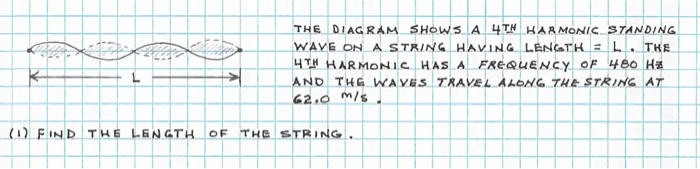 THE DIAGRAM SHOWS A 4TH HARMONIC STANDING
WAVE ON A STRING HAVING LENGTH = L. THE
4TH HARMONIC HAS A FREQUENCY OF 480 HZ
AND THE WAVES TRAVEL ALONG THE STRING AT
62.0 m/s.
L
(1) FIND THE LENGTH OF THE STRING.